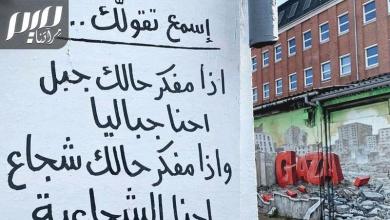 إسمع تقولّك ..
اذا مفكر حالك جبل
احنا جباليا
واذا مفكر حالك شجاع
احنا الشجاعية
GAZA